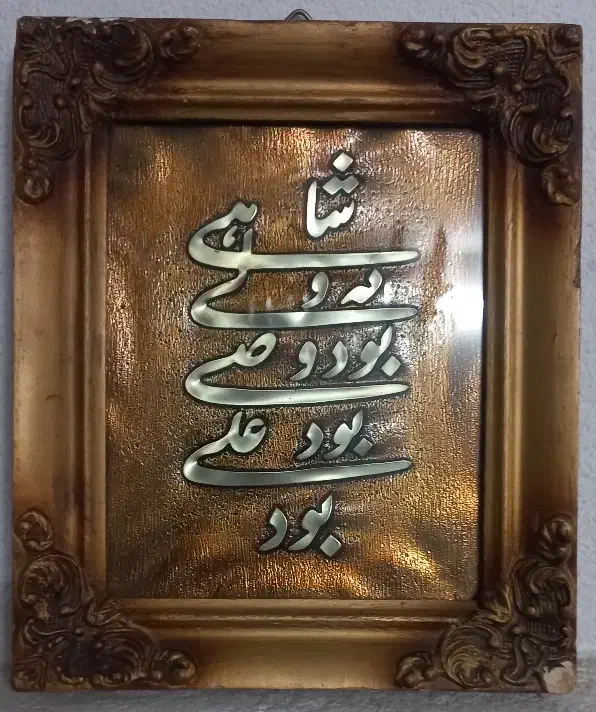 شاهی
که ولی
بود وصی
بود علی
بود